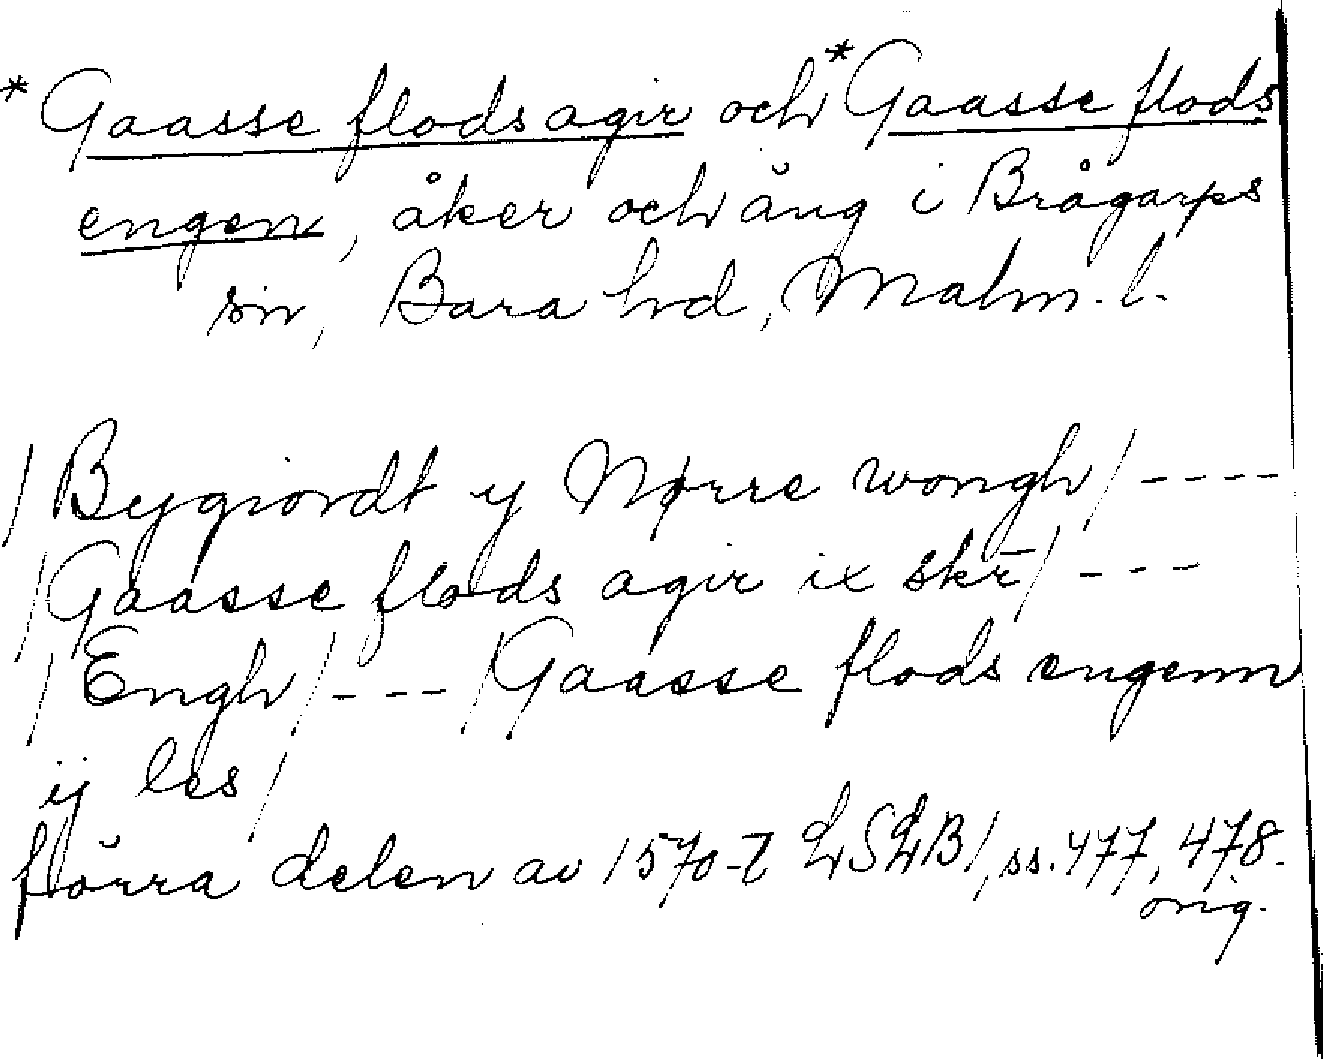 *Gaasse flods agir och *Gaasse flods
engen, åker och äng i Brågarps
sn, Bara hd, Malm. l.
/Bygiordt y Nørre wongh/----
/Gaasse flods agir ix skr̄/---
/Engh/---/Gaasse flods engenn
ij les/
förra delen av 1570-t LSLB1, ss. 477, 478.
orig.